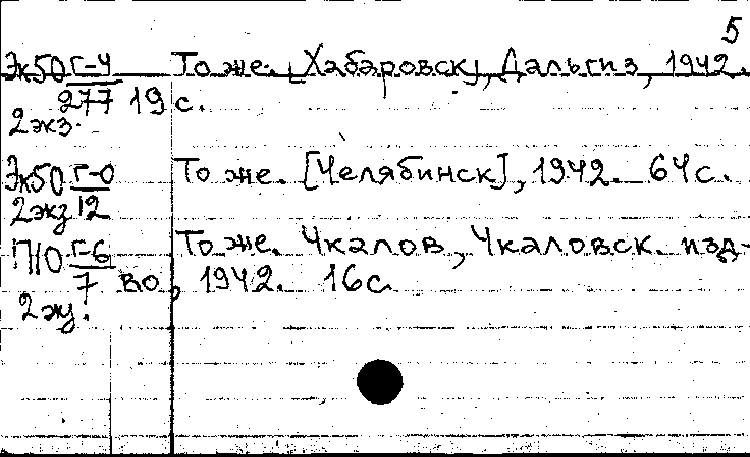 5
Эк50 Г-4 То же. [Хабаровск], Дальгиз, 1942.
277 19 с.
2экз.
Эк50 Г-0 То же. [Челябинск], 1942. 64 с.
2экз 12
П10 Г-6 То же. Чкалов, Чкаловск. изд-
7 во, 1942. 16 с.
2экз.